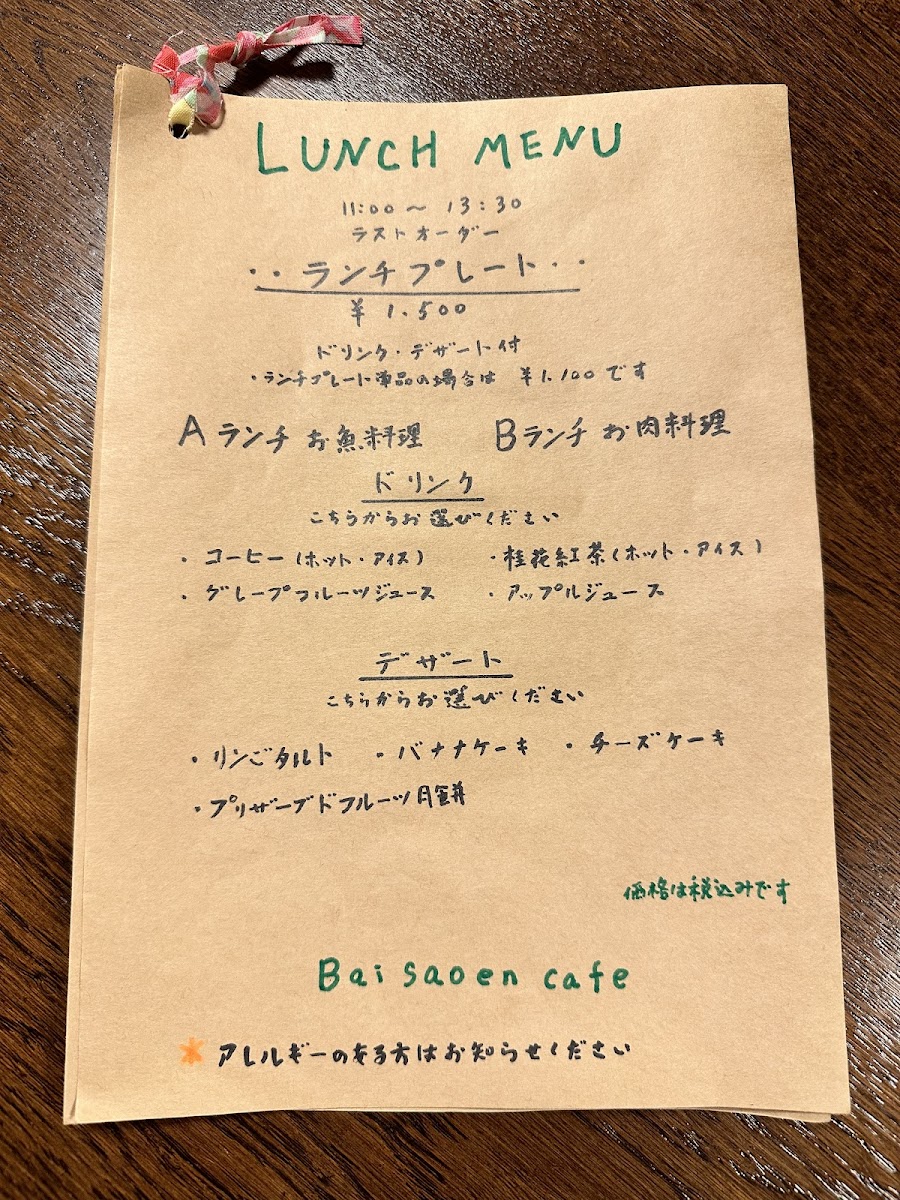 LUNCH MENU
11:00～13:30
ラストオーダー
・・ランチプレート・・
¥1.500
ドリンク・デザート付
・ランチプレート単品の場合は ¥1.100です
Aランチ お魚料理 Bランチ お肉料理
ドリンク
こちらからお選びください
・コーヒー(ホット・アイス) ・桂花紅茶(ホット・アイス)
・グレープフルーツジュース ・アップルジュース
デザート
こちらからお選びください
・リンごタルト ・バナナケーキ ・チーズケーキ
・プリザーブドフルーツ月餅
価格は税込みです
Baisaoen cafe
*アレルギーのある方はお知らせください